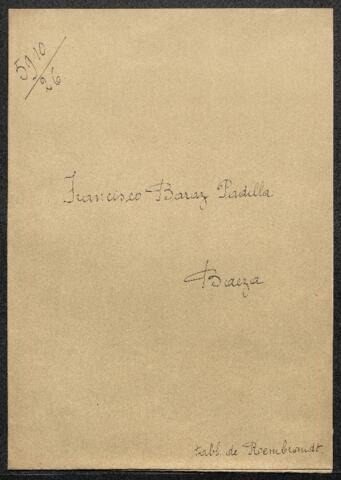 5910/36
Francisco Baraz Padilla
Baeza
tabl. de Roembrandt.